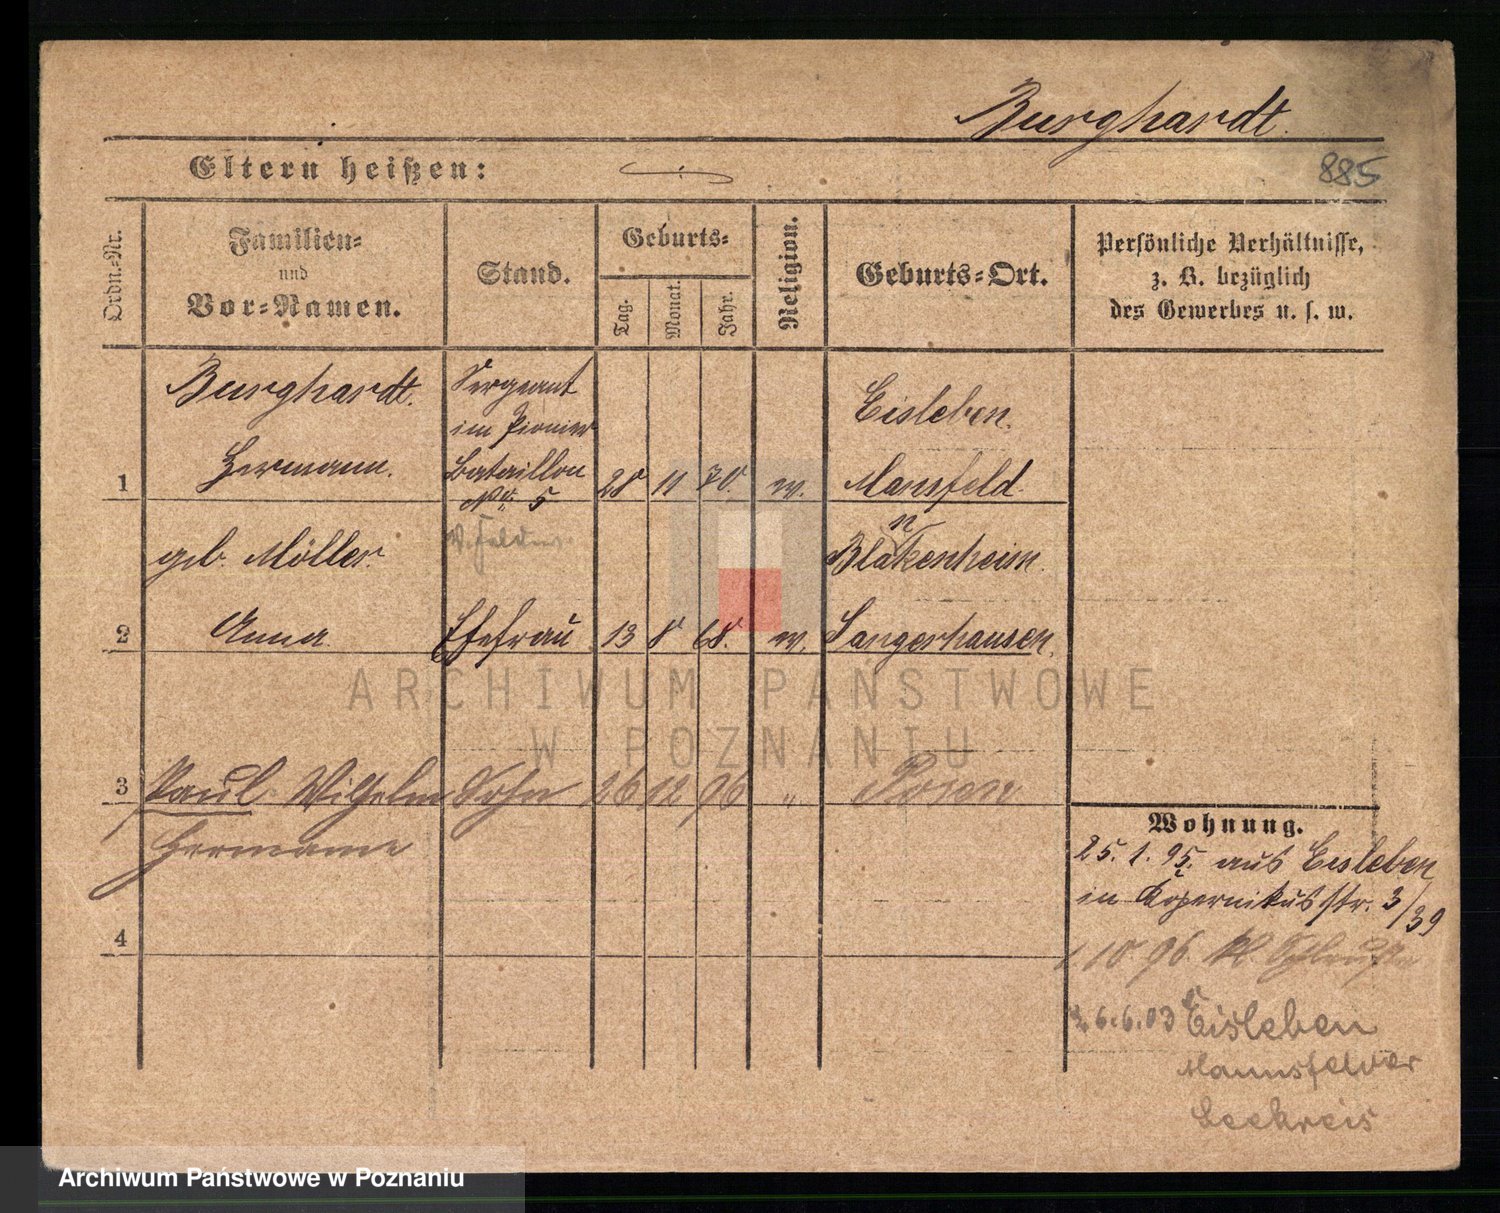 Burghardt.
885
Eltern heißen:
Ordn.-Nr.
Familien-
und
Vor-Namen.
Stand.
Geburts-
Tag.
Monat.
Jahr.
Religion.
Geburts-Ort.
Persönliche Verhältnisse,
z. B. bezüglich
des Gewerbes u. s. w.
1
Burghardt.
Hermann.
Sergeant
im Pionier
Bataillon
No. 5
28 11 70. ev.
Eisleben.
Mansfeld.
2
geb. Möller.
Anna
Ehefrau
13 8 68. ev.
Blankenheim.
Sangerhausen.
3
Paul Wilhelm
Hermann
Sohn
26 12 96 "
Posen
4
Wohnung.
25. 1. 95. aus Eisleben
in Kopernikusstr. 3/39
1 10 96
6.6.03 Eisleben
Mannsfelder
Seekreis
ARCHIWUM PAŃSTWOWE
W POZNANIU
Archiwum Państwowe w Poznaniu